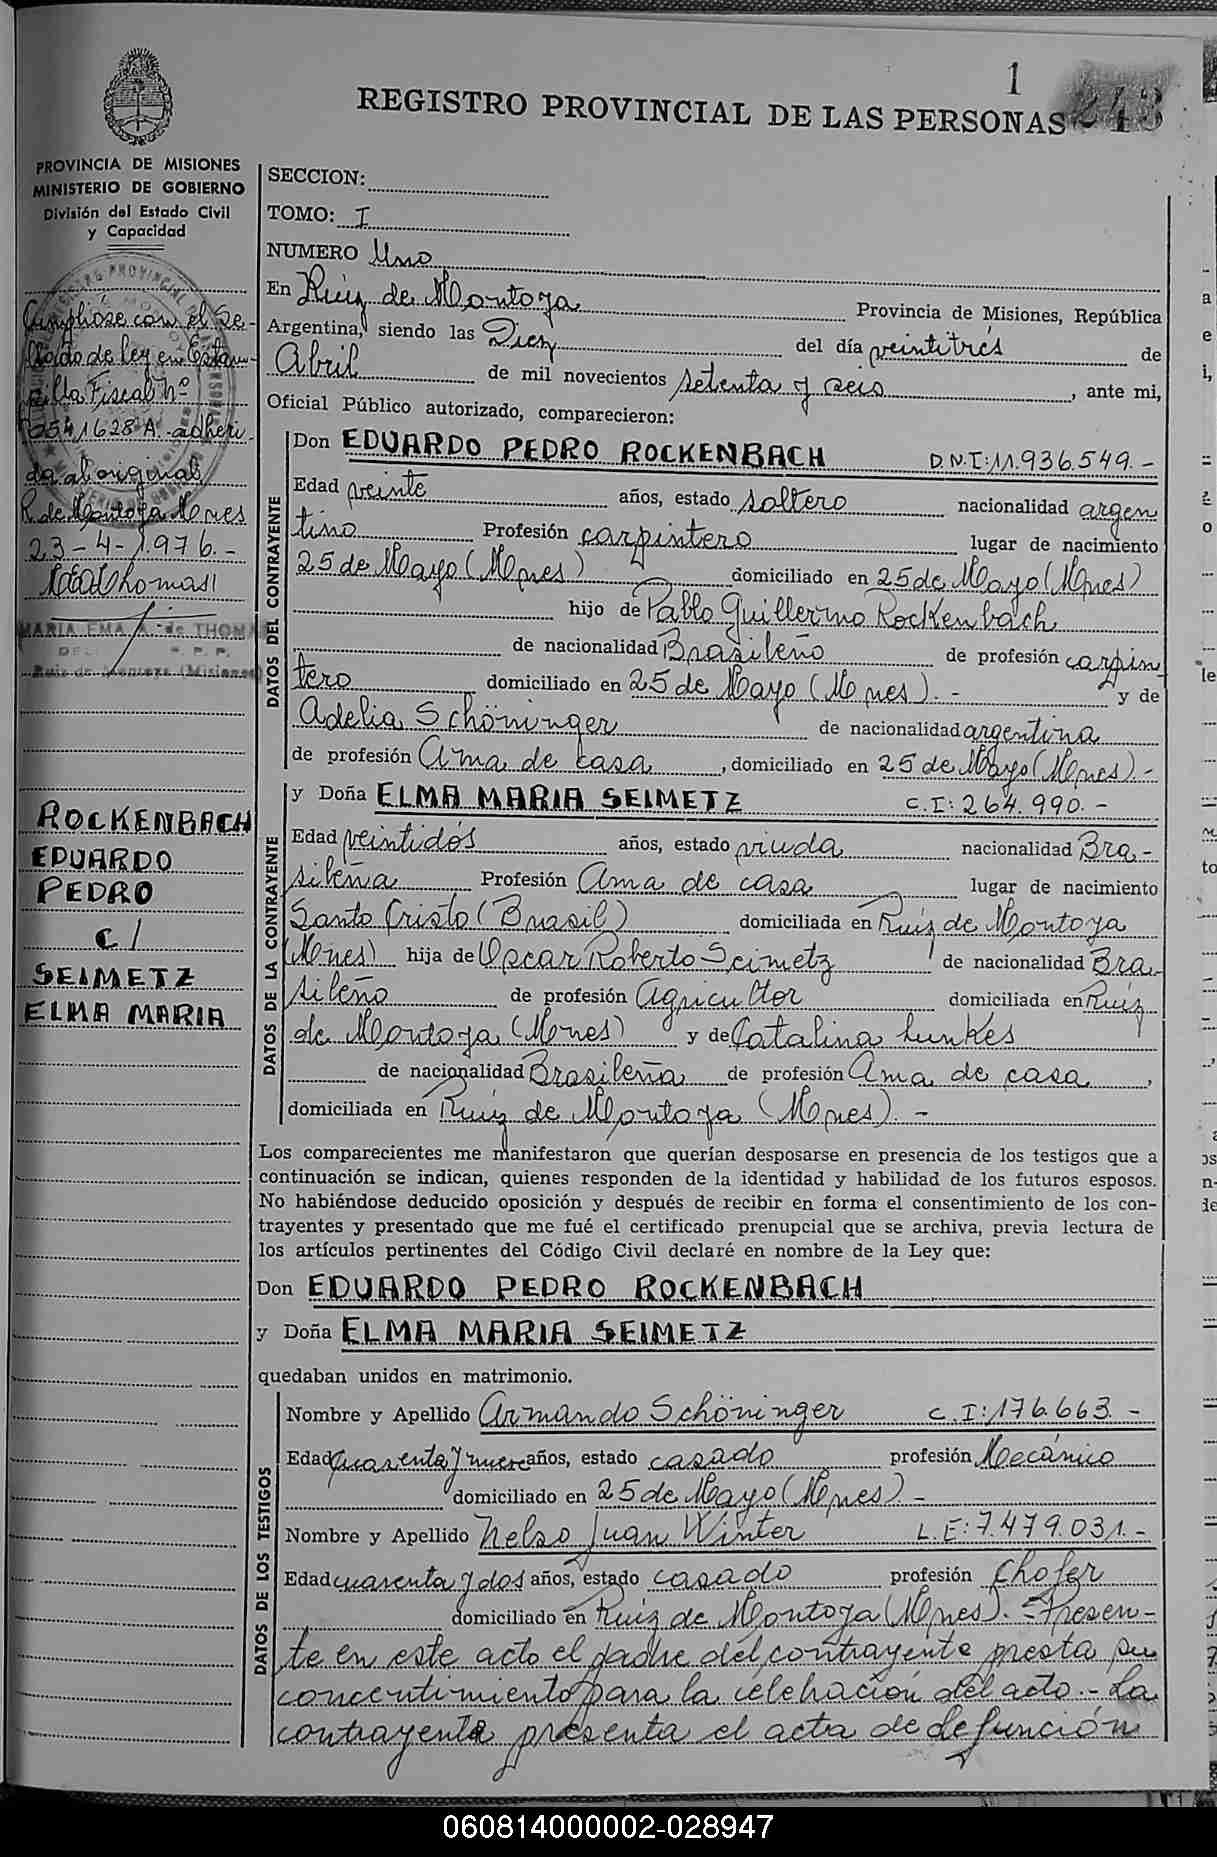 1
243
REGISTRO PROVINCIAL DE LAS PERSONAS
PROVINCIA DE MISIONES
MINISTERIO DE GOBIERNO
División del Estado Civil
y Capacidad
Cumplióse con el Se-
llado de ley en Estam-
pilla Fiscal Nº
0541628 A. adheri
da al original
R. de Montoya Mnes
23-4-1.976.-
MARIA EMA A. de THOMAS
DEL. R. P. P.
Ruiz de Montoya (Misiones)
ROCKENBACH
EDUARDO
PEDRO
C/
SEIMETZ
ELMA MARIA
SECCION:
TOMO: I
NUMERO Uno
En Ruiz de Montoya Provincia de Misiones, República
Argentina, siendo las Diez del día veintitrés de
Abril de mil novecientos setenta y seis, ante mi,
Oficial Público autorizado, comparecieron:
DATOS DEL CONTRAYENTE
Don EDUARDO PEDRO ROCKENBACH D.N.I:11.936.549.-
Edad veinte años, estado soltero nacionalidad argen
tino Profesión carpintero lugar de nacimiento
25 de Mayo (Mnes) domiciliado en 25 de Mayo (Mnes)
hijo de Pablo Guillermo Rockenbach
de nacionalidad Brasileño de profesión carpin
tero domiciliado en 25 de Mayo (Mnes).- y de
Adelia Schöninger de nacionalidad argentina
de profesión Ama de casa, domiciliado en 25 de Mayo (Mnes).-
DATOS DE LA CONTRAYENTE
y Doña ELMA MARIA SEIMETZ C.I:264.990.-
Edad veintidós años, estado viuda nacionalidad Bra-
sileña Profesión Ama de casa lugar de nacimiento
Santo Cristo (Brasil) domiciliada en Ruiz de Montoya
(Mnes) hija de Oscar Roberto Seimetz de nacionalidad Bra
sileño de profesión Agricultor domiciliada en Ruiz
de Montoya (Mnes) y de Catalina Lunkes
de nacionalidad Brasileña de profesión Ama de casa,
domiciliada en Ruiz de Montoya (Mnes).-
Los comparecientes me manifestaron que querían desposarse en presencia de los testigos que a
continuación se indican, quienes responden de la identidad y habilidad de los futuros esposos.
No habiéndose deducido oposición y después de recibir en forma el consentimiento de los con-
trayentes y presentado que me fué el certificado prenupcial que se archiva, previa lectura de
los artículos pertinentes del Código Civil declaré en nombre de la Ley que:
Don EDUARDO PEDRO ROCKENBACH
y Doña ELMA MARIA SEIMETZ
quedaban unidos en matrimonio.
DATOS DE LOS TESTIGOS
Nombre y Apellido Armando Schöninger C.I:176.663.-
Edad cuarenta y nueve años, estado casado profesión Mecánico
domiciliado en 25 de Mayo (Mnes).-
Nombre y Apellido Nelso Juan Winter L.E:7.479.031.-
Edad cuarenta y dos años, estado casado profesión Chofer
domiciliado en Ruiz de Montoya (Mnes).- Presen-
te en este acto el padre del contrayente presta su
concentimiento para la celebración del acto.- La
contrayente presenta el acta de defunción
060814000002-028947